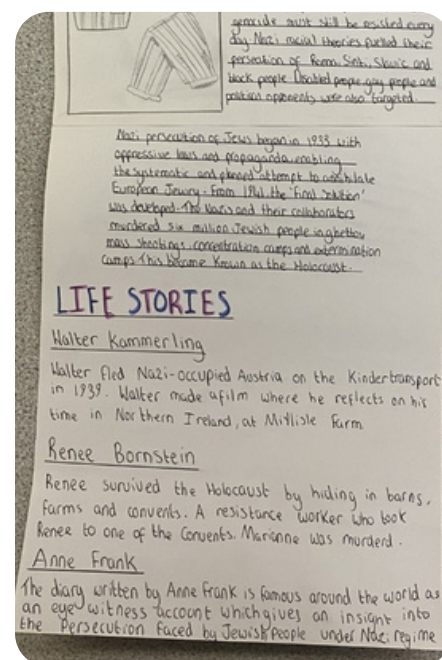 genocide must still be resisted every
day Nazi racial theories fuelled their
persecution of Roma, Sinti, Slavic and
black people. Disabled people, gay people and
political opponents were also targeted.
Nazi persecution of Jews began in 1933 with
oppressive laws and propaganda enabling
the systematic and planned attempt to annihilate
European Jewry. From 1941 the 'Final Solution'
was developed. The Nazis and their collaborators
murdered six million Jewish people in ghettos
mass shootings, concentration camps and extermination
camps This became known as the Holocaust.
LIFE STORIES
Walter Kammerling
Walter fled Nazi-occupied Austria on the Kindertransport
in 1939. Walter made a film where he reflects on his
time in Northern Ireland, at Millisle Farm
Renee Bornstein
Renee survived the Holocaust by hiding in barns,
farms and convents. A resistance worker who took
Renee to one of the Convents. Marianne was murderd.
Anne Frank
The diary written by Anne Frank is famous around the world as
an eye witness account which gives an insight into
the Persecution faced by Jewish People under Nazi regime